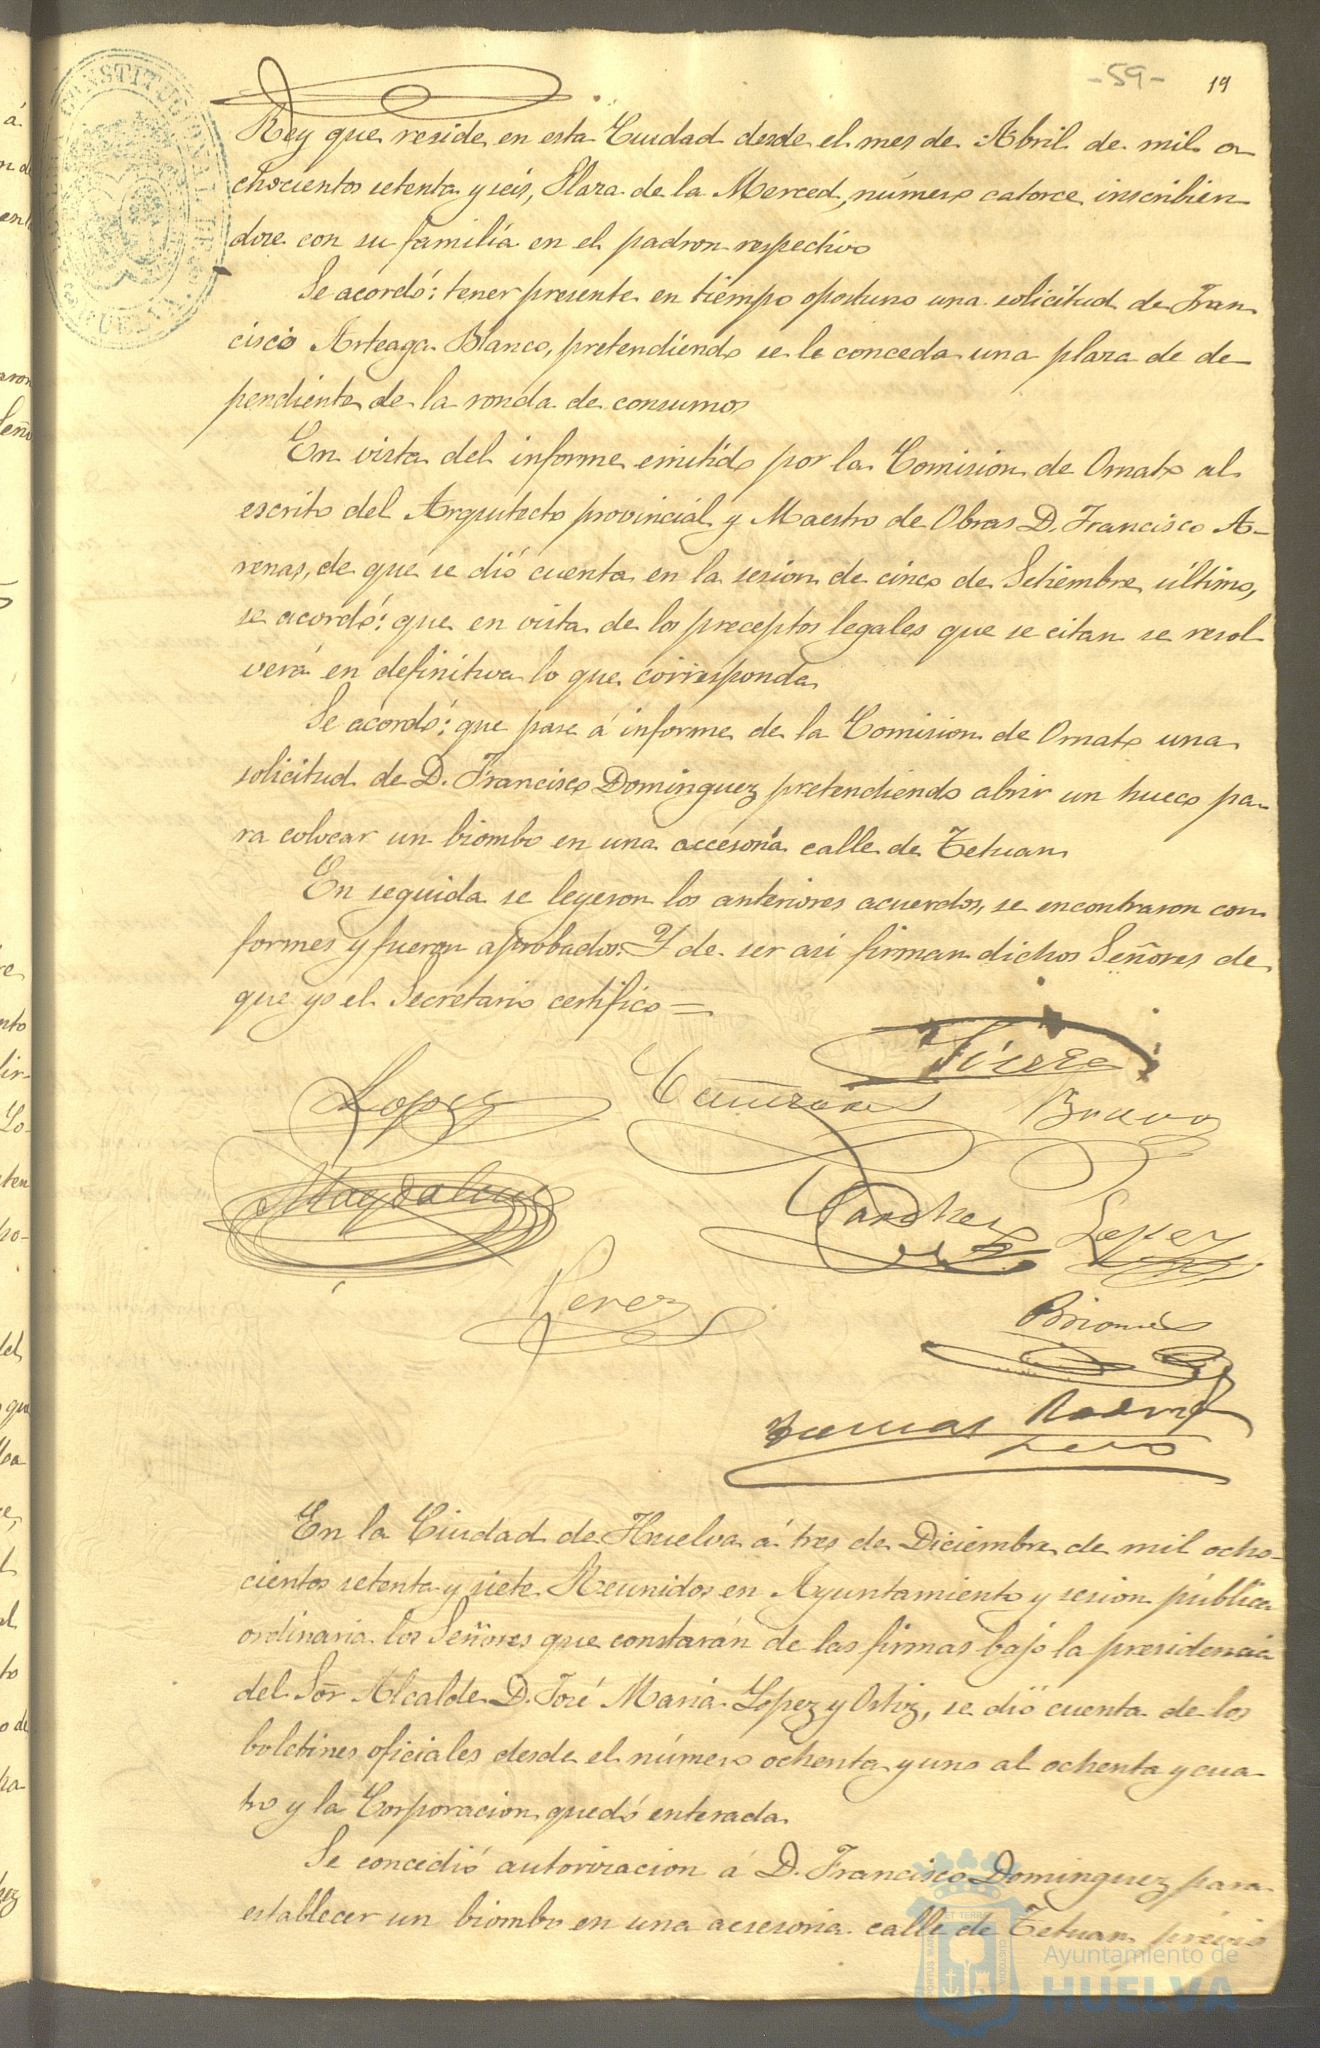 -59- 19
Rey que reside en esta Ciudad desde el mes de Abril de mil o
chocientos setenta y seis, Plaza de la Merced, número catorce inscribien
dose con su familia en el padron respectivo
Se acordó: tener presente en tiempo oportuno una solicitud de Fran
cisco Arteaga Blanco, pretendiendo se le conceda una plaza de de
pendiente de la ronda de consumos
En vista del informe emitido por la Comision de Ornato al
escrito del Arquitecto provincial y Maestro de Obras D. Francisco A-
renas, de que se dió cuenta en la sesion de cinco de Setiembre último,
se acordó: que en vista de los preceptos legales que se citan se resol
verá en definitiva lo que corresponda
Se acordó: que pase á informe de la Comision de Ornato una
solicitud de D. Francisco Dominguez pretendiendo abrir un hueco pa-
ra colocar un biombo en una accesoria calle de Tetuan
En seguida se leyeron los anteriores acuerdos, se encontraron con
formes y fueron aprobados. Y de ser asi firman dichos Señores de
que yo el Secretario certifico =
Lopez
Bravo
Magdalena
Sanchez Lopez
Perez
Briones
En la Ciudad de Huelva á tres de Diciembre de mil ocho-
cientos setenta y siete Reunidos en Ayuntamiento y sesion pública
ordinaria los Señores que constarán de las firmas bajo la presidencia
del Sor Alcalde D. José Maria Lopez y Ortiz, se dió cuenta de los
boletines oficiales desde el número ochenta y uno al ochenta y cua-
tro y la Corporacion quedó enterada
Se concedió autorizacion á D. Francisco Dominguez para
establecer un biombo en una acsesoria calle de Tetuan previo
Ayuntamiento de
HUELVA